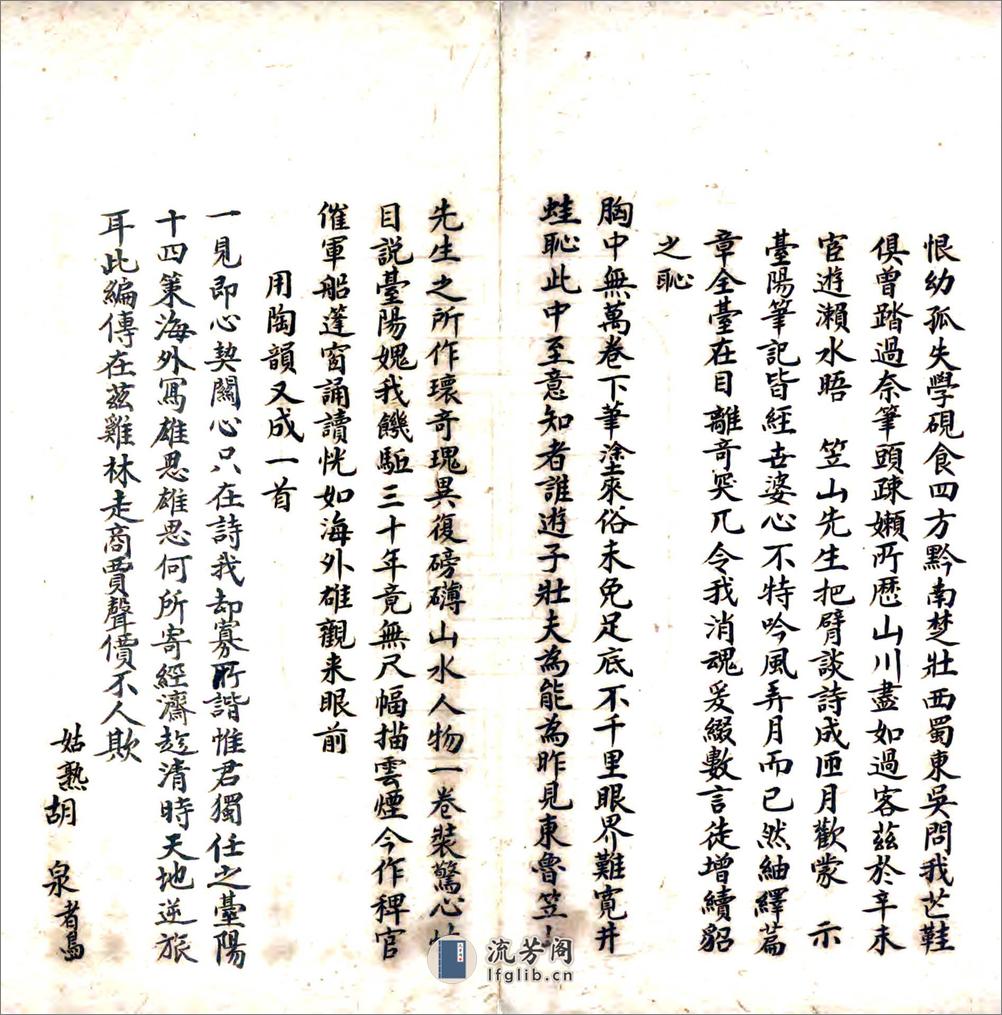 恨幼孤失學硯食四方黔南楚壯西蜀東吳問我芒鞋
俱曾踏過奈筆頭疎嬾所歷山川盡如過客茲於辛未
宦遊瀨水晤　笠山先生把臂談詩成匝月歡蒙　示
臺陽筆記皆經世婆心不特吟風弄月而已然紬繹篇
章全臺在目離奇突兀令我消魂爰綴數言徒增續貂
之恥
胸中無萬卷下筆塗來俗未免足底不千里眼界難寬井
蛙恥此中至意知者誰遊子壯夫為能為昨見東魯笠
先生之所作瓌奇瑰異復磅礴山水人物一卷裝驚心
目説臺陽媿我饑駈三十年竟無尺幅描雲煙今作稗官
催軍船蓬窗誦讀恍如海外雄觀来眼前
用陶韻又成一首
一見即心契關心只在詩我却寡所諧惟君獨任之臺陽
十四策海外寫雄思雄思何所寄經濟趁清時天地逆旅
耳此編傳在茲雞林走商賈聲價不人欺
姑熟胡　泉者島
流芳阁
lfglib.cn